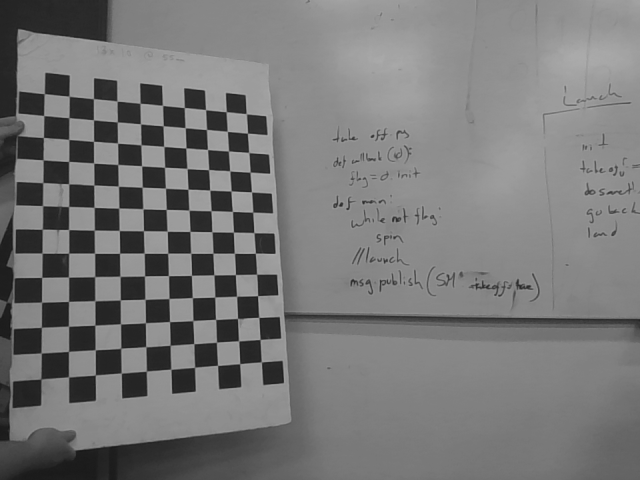 take off.py
def callback (id):
flag = id.init
def main:
while not flag:
spin
//launch
msg.publish (SM
Launch
init
takeoff
go back
land